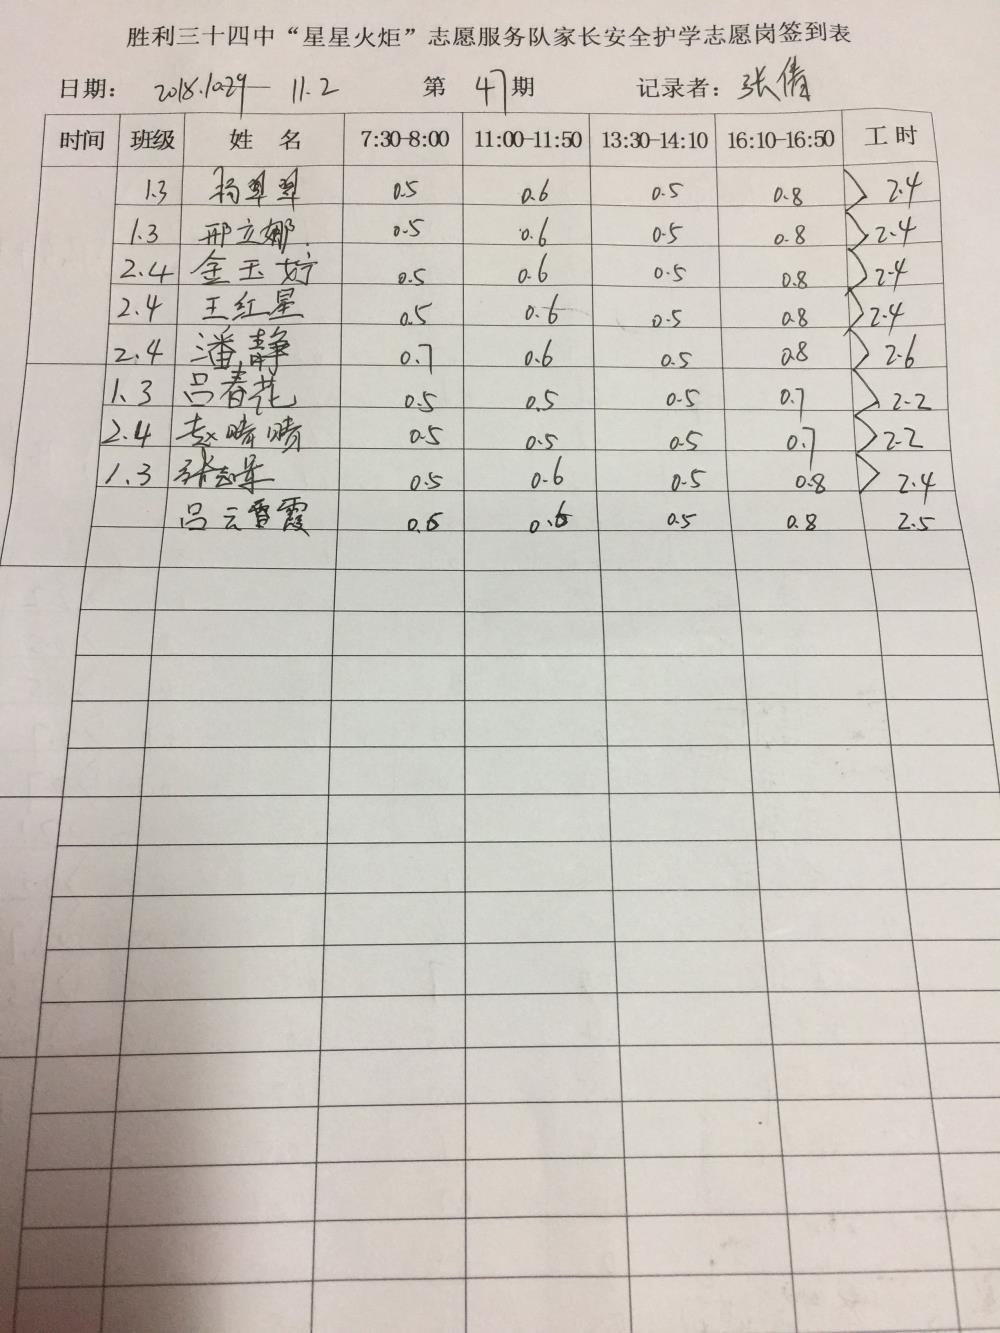 胜利三十四中“星星火炬”志愿服务队家长安全护学志愿岗签到表
日期： 2018.10.29— 11.2 第 47 期 记录者：张倩
时间 班级 姓 名 7:30-8:00 11:00-11:50 13:30-14:10 16:10-16:50 工时
1.3 杨翠翠 0.5 0.6 0.5 0.8 2.4
1.3 邢立娜 0.5 0.6 0.5 0.8 2.4
2.4 金玉婷 0.5 0.6 0.5 0.8 2.4
2.4 王红星 0.5 0.6 0.5 0.8 2.4
2.4 潘静 0.7 0.6 0.5 0.8 2.6
1.3 吕春花 0.5 0.5 0.5 0.7 2.2
2.4 赵晴晴 0.5 0.5 0.5 0.7 2.2
1.3 0.5 0.6 0.5 0.8 2.4
吕云霞 0.6 0.6 0.5 0.8 2.5